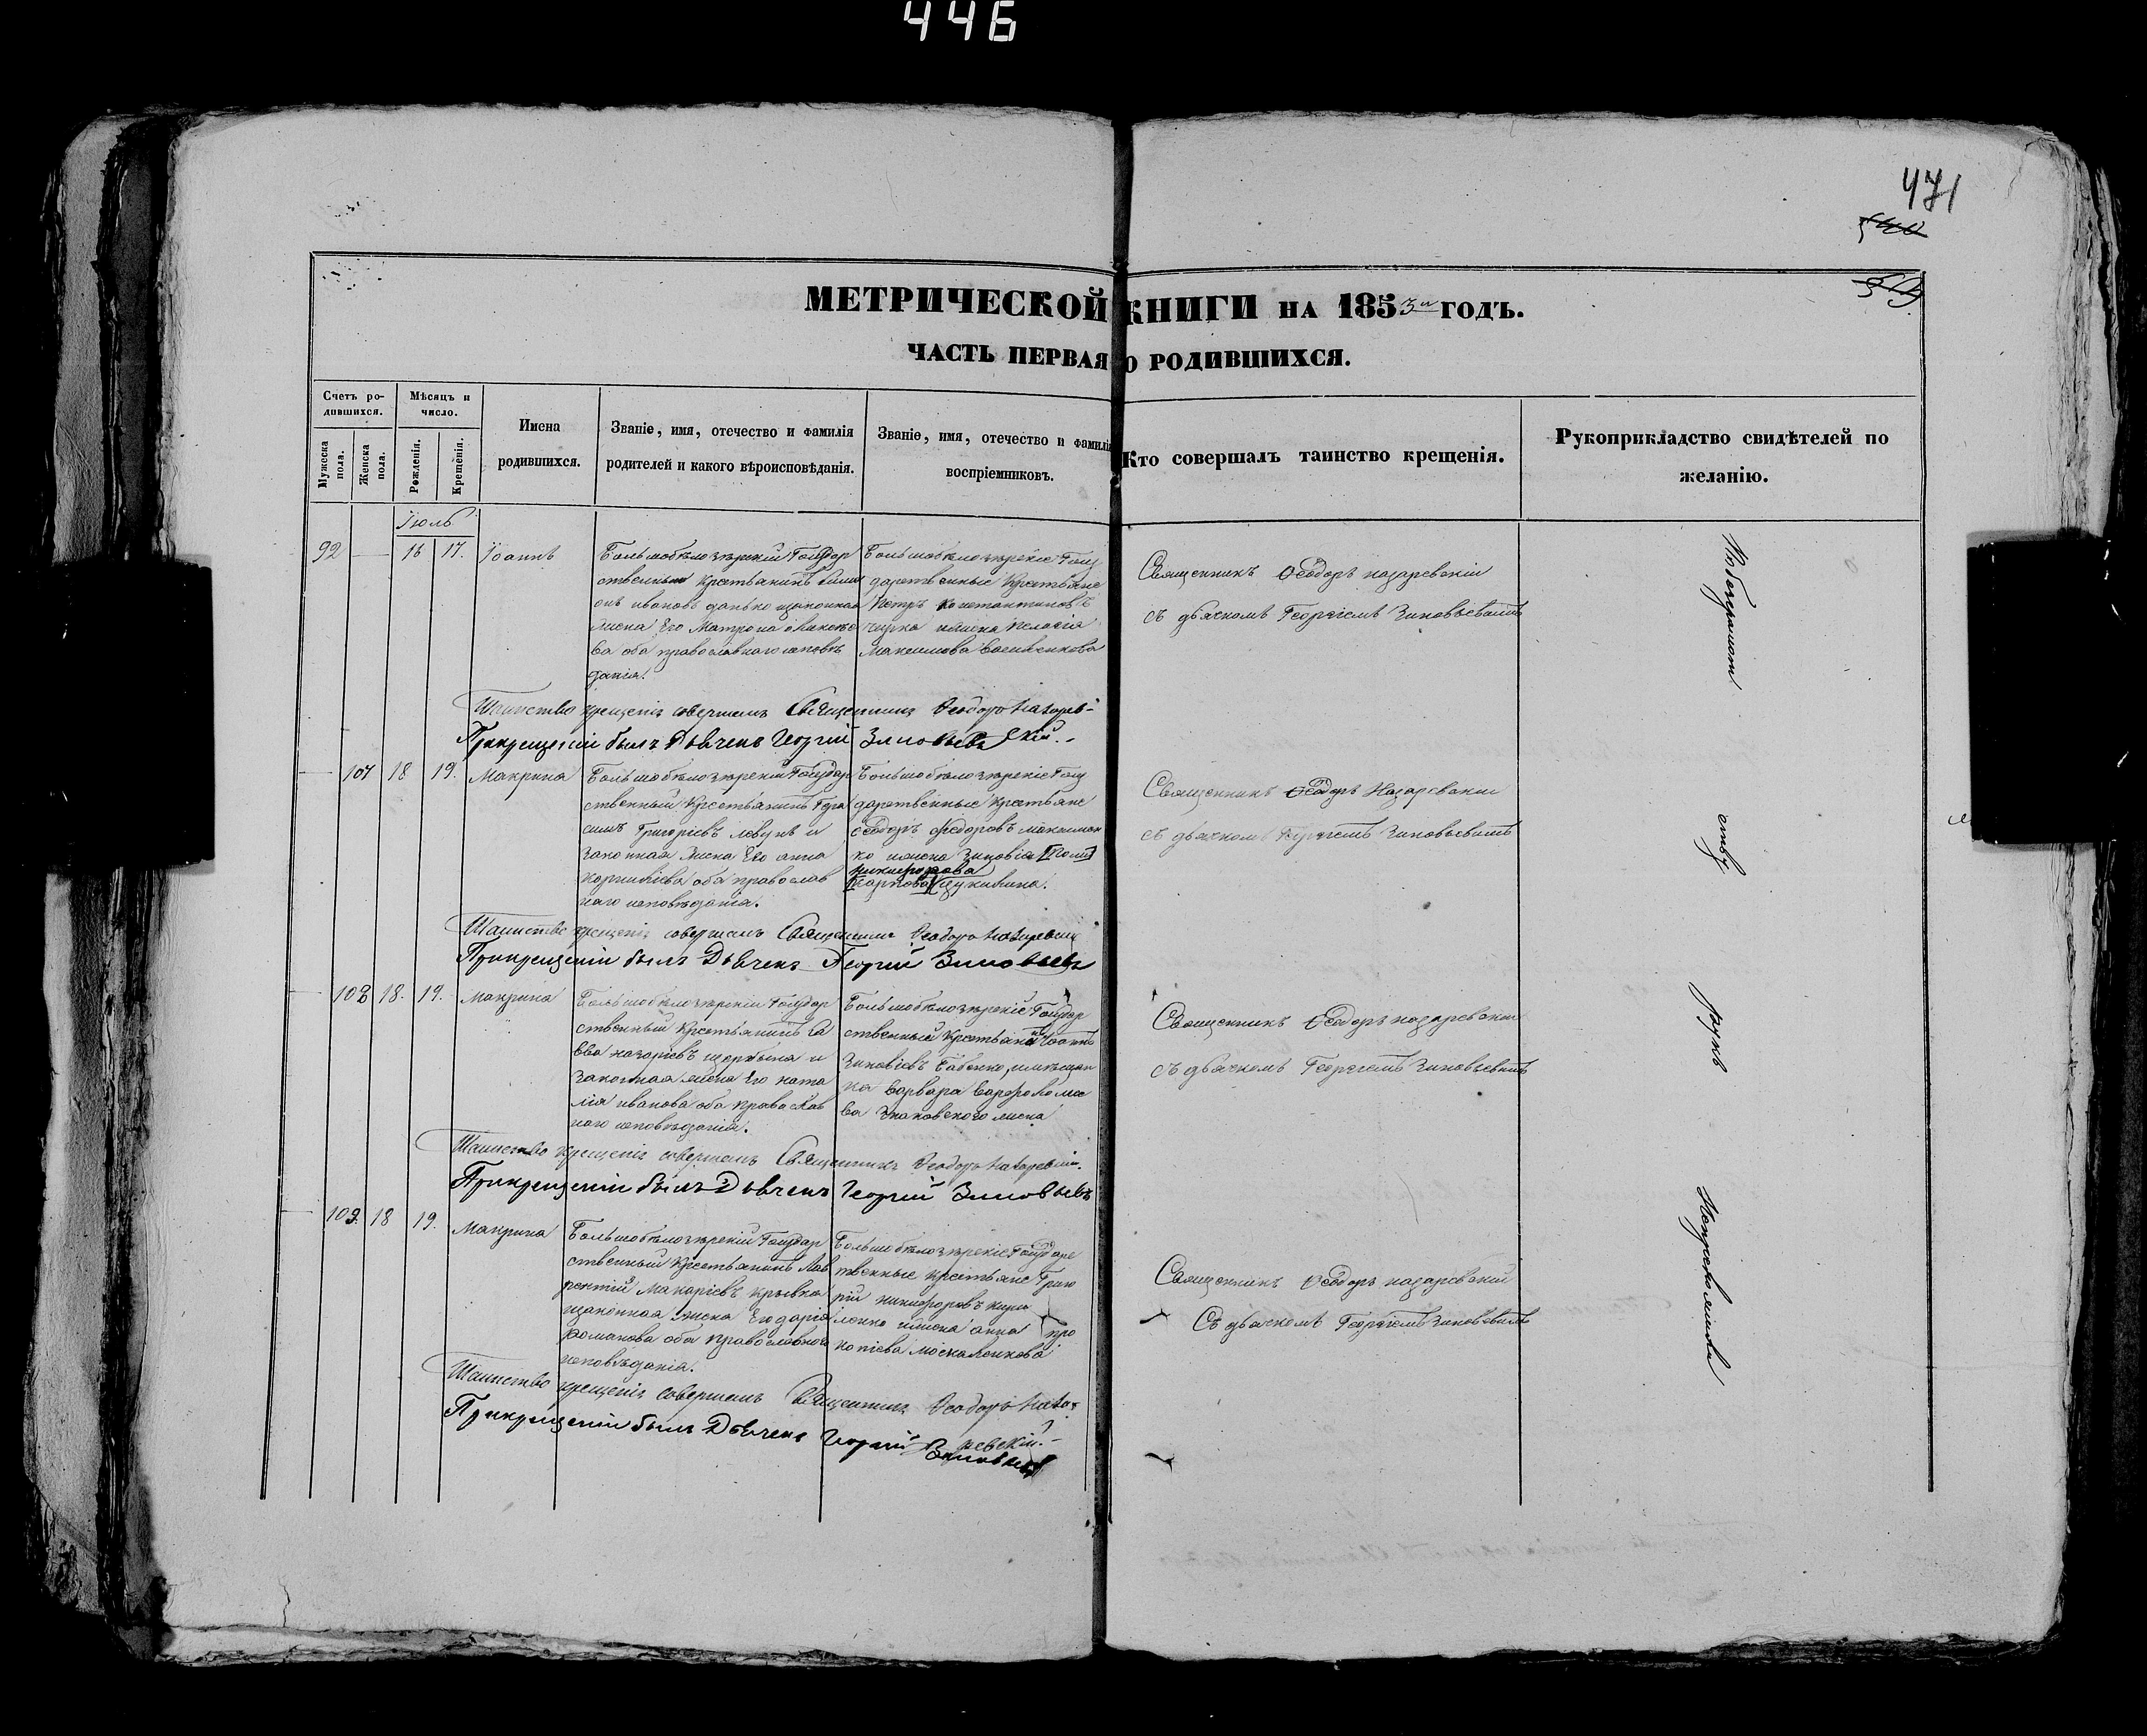 446
471
МЕТРИЧЕСКОЙ КНИГИ НА 1853й ГОДЪ.
ЧАСТЬ ПЕРВАЯ О РОДИВШИХСЯ.
Счетъ родившихся.
Мужеска пола.
Женска пола.
Мѣсяцъ и число.
Рожденія.
Крещенія.
Имена родившихся.
Званіе, имя, отечество и фамилія родителей и какого вѣроисповѣданія.
Званіе, имя, отечество и фамилія воспріемниковъ.
Кто совершалъ таинство крещенія.
Рукоприкладство свидѣтелей по желанію.
Іюль
92 — 16 17. Іоаннъ
Большобѣлозѣрскій Государ
ственный Крестьянинъ
онъ ивановъ данько изаконная
жена Его Матрона
ва оба православнаго исповѣ
данія.
Большобѣлозѣрскіе Госу
дарственные Крестьяне
Петръ Константиновъ
ижена Пелагія
Максимова
Священникъ Ѳеодоръ назаревскій
съ дьячкомъ Георгіемъ Зиновьевымъ
Таинство крещенія совершалъ Священникъ Ѳеодоръ Назарев-
скій.
Прикрещеніи былъ Дьячекъ Георгій Зиновьевъ
— 101 18 19. Макрина
Большобѣлозѣрскій Государ
ственный Крестьянинъ Гера
симъ Григоріевъ левунъ и
законная жена Его анна
корниліева оба православ
наго исповѣданія.
Большобѣлозѣрскіе Госу
дарственные крестьяне
ѳеодоръ федоровъ максимен
ко ижена Зиновія
никифорова
Карпова Щукина.
Священникъ Ѳеодоръ Назаревскій
съ дьячкомъ Георгіемъ Зиновьевымъ
Таинство крещенія совершалъ Священникъ Ѳеодоръ Назаревскій
Прикрещеніи былъ Дьячекъ Георгій Зиновьевъ
— 102 18. 19. Макрина
Большобѣлозѣрскій Государ
ственный Крестьянинъ Са
вва назаріевъ щербина и
законная жена Его ната
лія иванова оба православ
наго исповѣданія.
Большобѣлозѣрскіе Государ
ственный Крестьянинъ Іоаннъ
Зиновіевъ Бабенко, имѣщан
ка варвара варфоломее
ва жена
Священникъ Ѳеодоръ назаревскій
съ дьячкомъ Георгіемъ Зиновьевымъ
Таинство крещенія совершалъ Священникъ Ѳеодоръ Назаревскій.
Прикрещеніи былъ Дьячекъ Георгій Зиновьевъ
— 103. 18 19. Макрина
Большобѣлозѣрскій Государ
ственный Крестьянинъ Лав
рентій Макаріевъ крывка
изаконная жена Его дарія
романова оба православнаго
исповѣданія.
Большобѣлозѣрскіе Государс
твенные крестьяне Григо
рій никифоровъ кири
ленко ижена анна про
копіева москаленкова
Священникъ Ѳеодоръ назаревскій
Съ дьячкомъ Георгіемъ Зиновьевымъ
Таинство крещенія совершалъ Священникъ Ѳеодоръ Наза-
ревскій.
Прикрещеніи былъ Дьячекъ Георгій Зиновьевъ